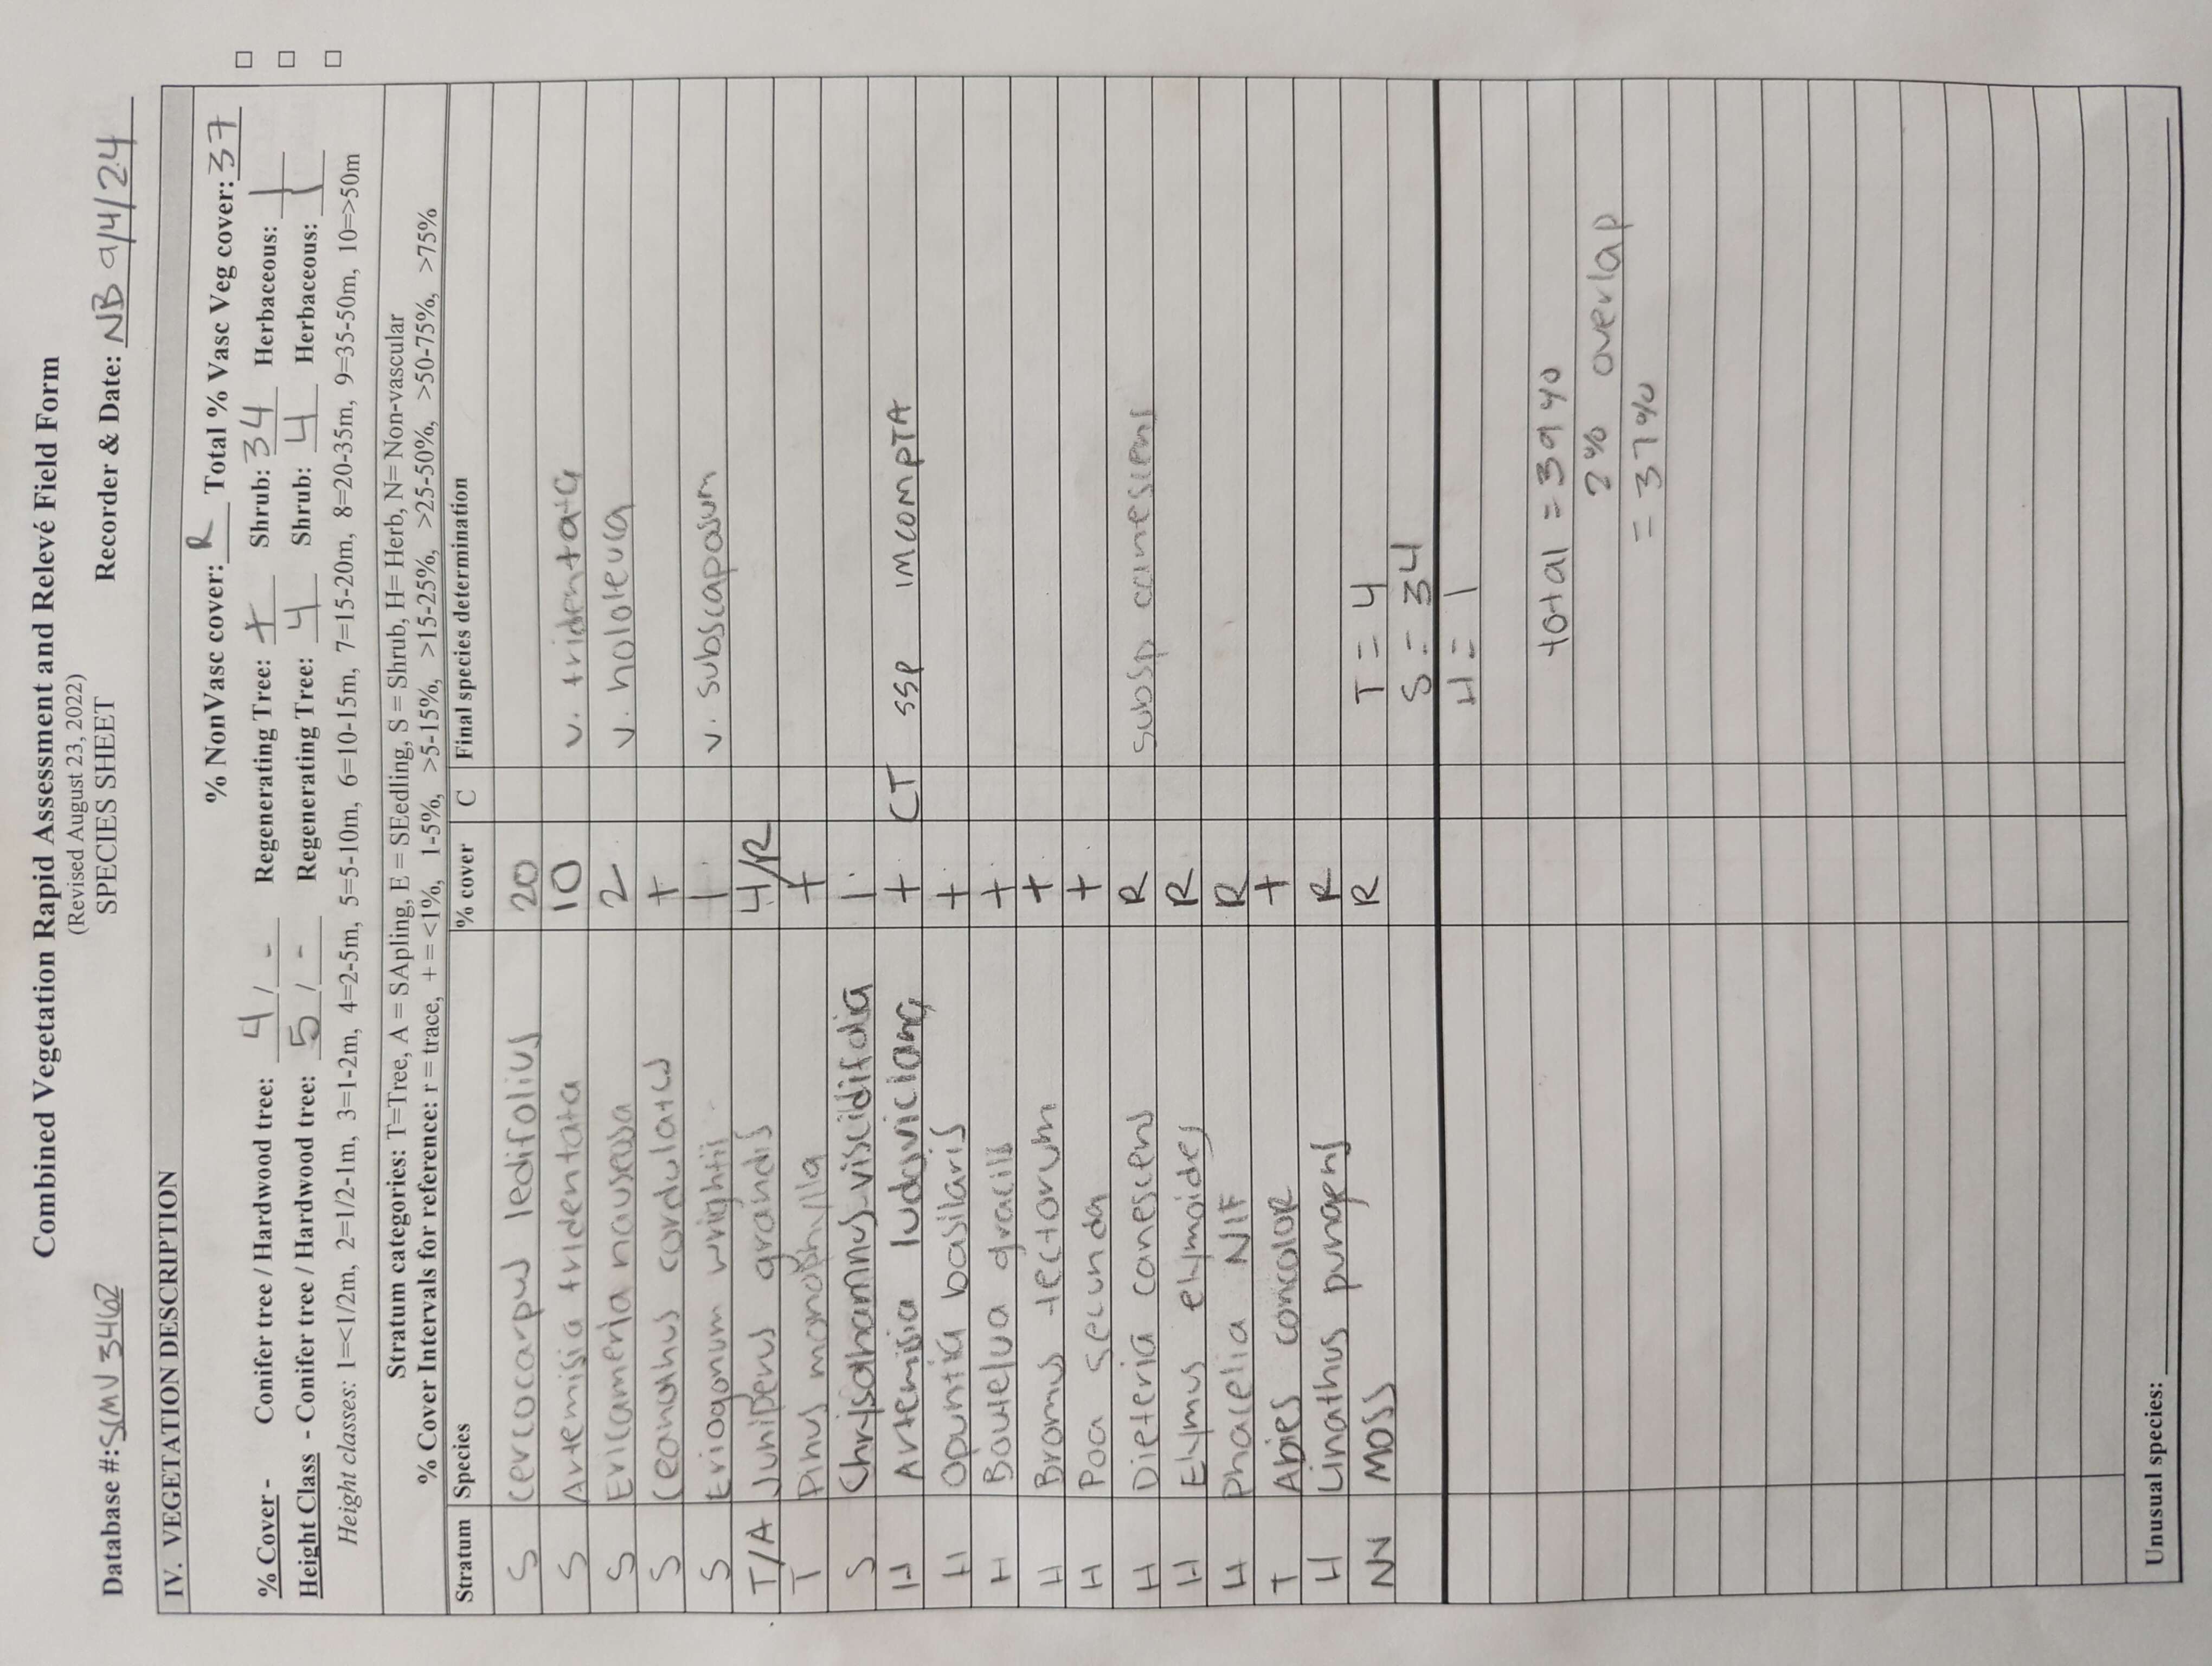 Combined Vegetation Rapid Assessment and Relevé Field Form
(Revised August 23, 2022)
Database #: SCMV 3462 SPECIES SHEET Recorder & Date: NB 9/4/24
IV. VEGETATION DESCRIPTION
% NonVasc cover: R Total % Vasc Veg cover: 37
% Cover - Conifer tree / Hardwood tree: 4 / - Regenerating Tree: + Shrub: 34 Herbaceous: 1
Height Class - Conifer tree / Hardwood tree: 5 / - Regenerating Tree: 4 Shrub: 4 Herbaceous: 1
Height classes: 1=<1/2m, 2=1/2-1m, 3=1-2m, 4=2-5m, 5=5-10m, 6=10-15m, 7=15-20m, 8=20-35m, 9=35-50m, 10=>50m
Stratum categories: T=Tree, A = SApling, E = SEedling, S = Shrub, H= Herb, N= Non-vascular
% Cover Intervals for reference: r = trace, + = <1%, 1-5%, >5-15%, >15-25%, >25-50%, >50-75%, >75%
Stratum Species % cover C Final species determination
S Cercocarpus ledifolius 20
S Artemisia tridentata 10 v. tridentata
S Ericameria nauseosa 2 v. hololeuca
S Ceanothus cordulatus +
S Eriogonum wrightii 1 v. subscaposum
T/A Juniperus grandis 4/R
T Pinus monophylla +
S Chrysothamnus viscidifolia 1
H Artemisia ludoviciana + CT ssp incompta
H Opuntia basilaris +
H Boutelua gracilis +
H Bromus tectorum +
H Poa secunda +
H Dieteria canescens R subsp canescens
H Elymus elymoides R
H Phacelia NIF R
T Abies concolor +
H Linathus pungens R
N Moss R T = 4
S = 34
H = 1
total = 39%
2% overlap
= 37%
Unusual species: